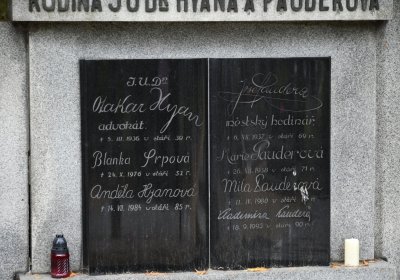 RODINA JUDR HYANA A PAUDEROVA
J.U.Dr
Otakar Hyan
advokát.
† 5. 10. 1936 v stáří 39 r.
Blanka Srpova
† 24. X. 1976 v stáří 51 r.
Anděla Hyanová
† 14. III. 1984 v stáří 85 r.
Jos. Paudera
městský hodinář
† 6. XI. 1937 v stáří 69 r.
Marie Pauderová
v stáří 71 r.
Míla Pauderová
† 11. IV. 1980 v stáří
Vladimíra Pauderov
† 18. 9. 1992 v stáří 90 r.